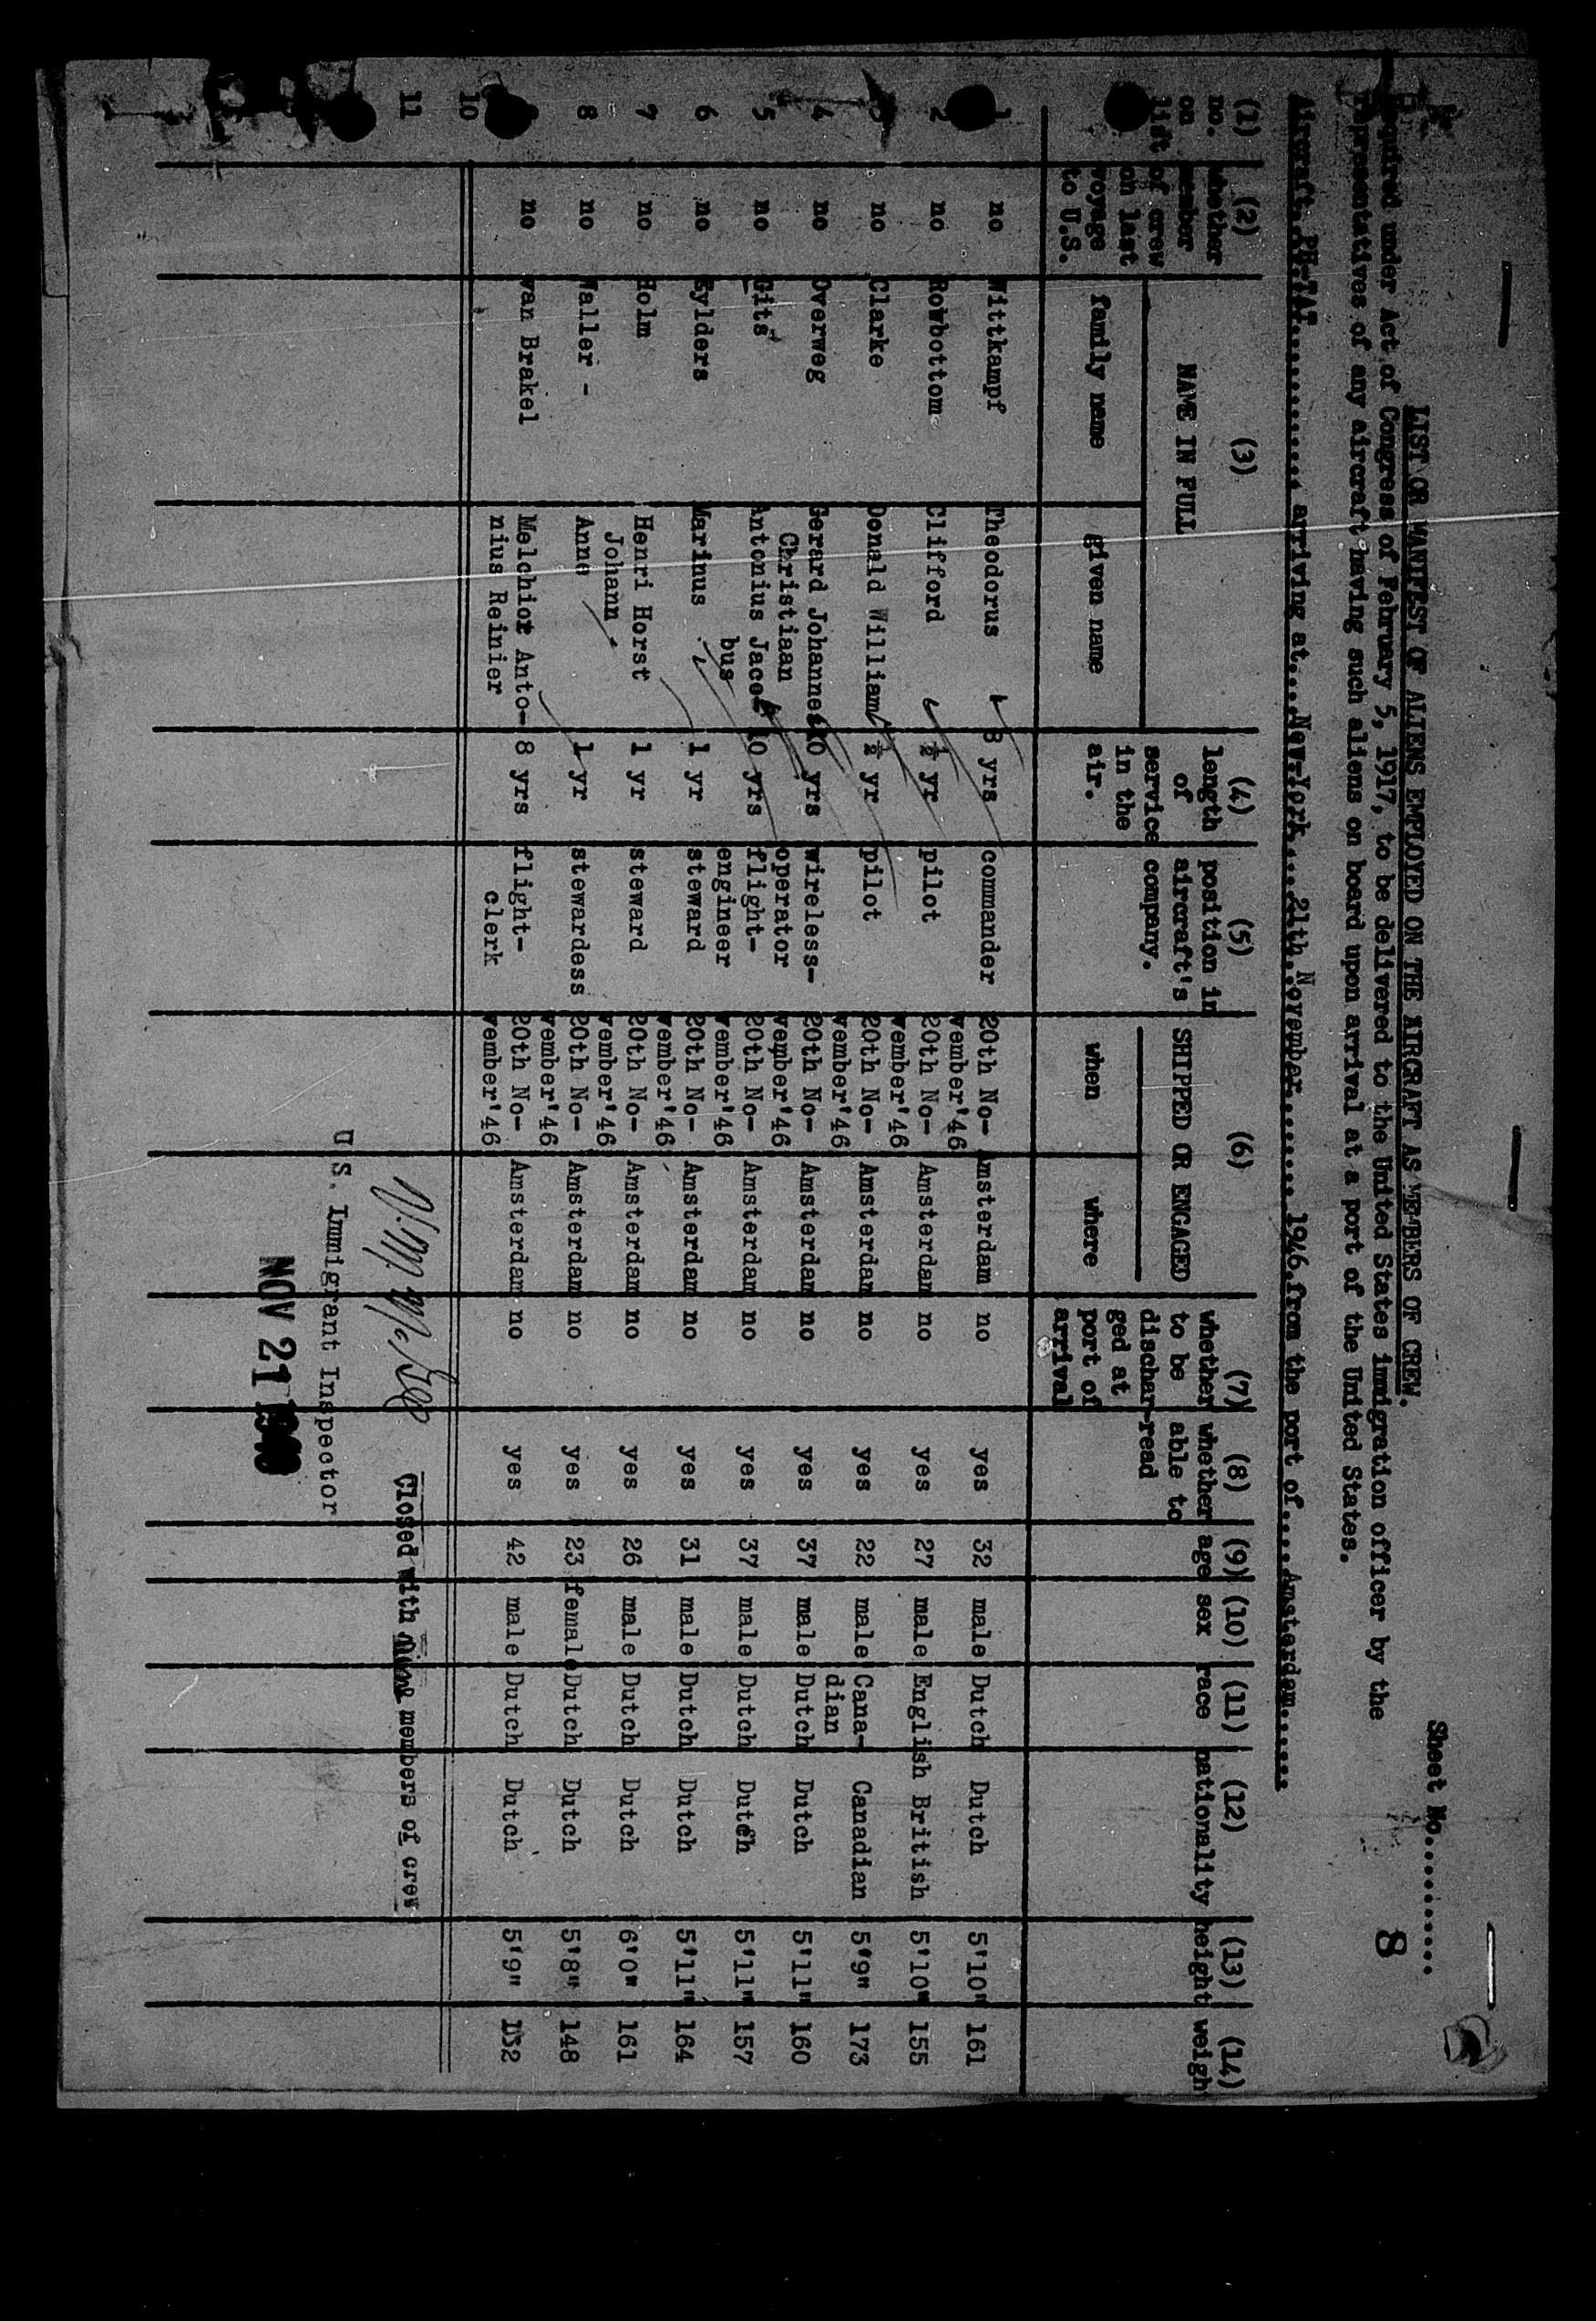 Sheet No..........
8
LIST OR MANIFEST OF ALIENS EMPLOYED ON THE AIRCRAFT AS MEMBERS OF CREW.
Required under Act of Congress of February 5, 1917, to be delivered to the United States immigration officer by the
representatives of any aircraft having such aliens on board upon arrival at a port of the United States.
Aircraft..PH-TAT............ arriving at...New-York....21th.November........ 1946.from the port of.....Amsterdam......
(1) (2) (3) (4) (5) (6) (7) (8) (9) (10) (11) (12) (13) (14)
no. on list
whether member of crew on last voyage to U.S.
NAME IN FULL
family name given name
length of service in the air.
position in aircraft's company.
SHIPPED OR ENGAGED
when where
whether to be dischar- ged at port of arrival
whether able to read
age sex race nationality height weigh
1 no Wittkampf Theodorus 8 yrs commander 20th No-vember'46 Amsterdam no yes 32 male Dutch Dutch 5'10" 161
2 no Rowbottom Clifford ½ yr pilot 20th No-vember'46 Amsterdam no yes 27 male English British 5'10" 155
3 no Clarke Donald William ½ yr pilot 20th No-vember'46 Amsterdam no yes 22 male Cana-dian Canadian 5'9" 173
4 no Overweg Gerard Johannes Christiaan 10 yrs wireless-operator 20th No-vember'46 Amsterdam no yes 37 male Dutch Dutch 5'11" 160
5 no Gits Antonius Jaco-bus 10 yrs flight-engineer 20th No-vember'46 Amsterdam no yes 37 male Dutch Dutch 5'11" 157
6 no Eylders Marinus 1 yr steward 20th No-vember'46 Amsterdam no yes 31 male Dutch Dutch 5'11" 164
7 no Holm Henri Horst Johann 1 yr steward 20th No-vember'46 Amsterdam no yes 26 male Dutch Dutch 6'0" 161
8 no Waller - Anne 1 yr stewardess 20th No-vember'46 Amsterdam no yes 23 female Dutch Dutch 5'8" 148
no van Brakel Melchior Anto-nius Reinier 8 yrs flight-clerk 20th No-vember'46 Amsterdam no yes 42 male Dutch Dutch 5'9" 132
10
11
Closed with nine members of crew
U S. Immigrant Inspector
NOV 21